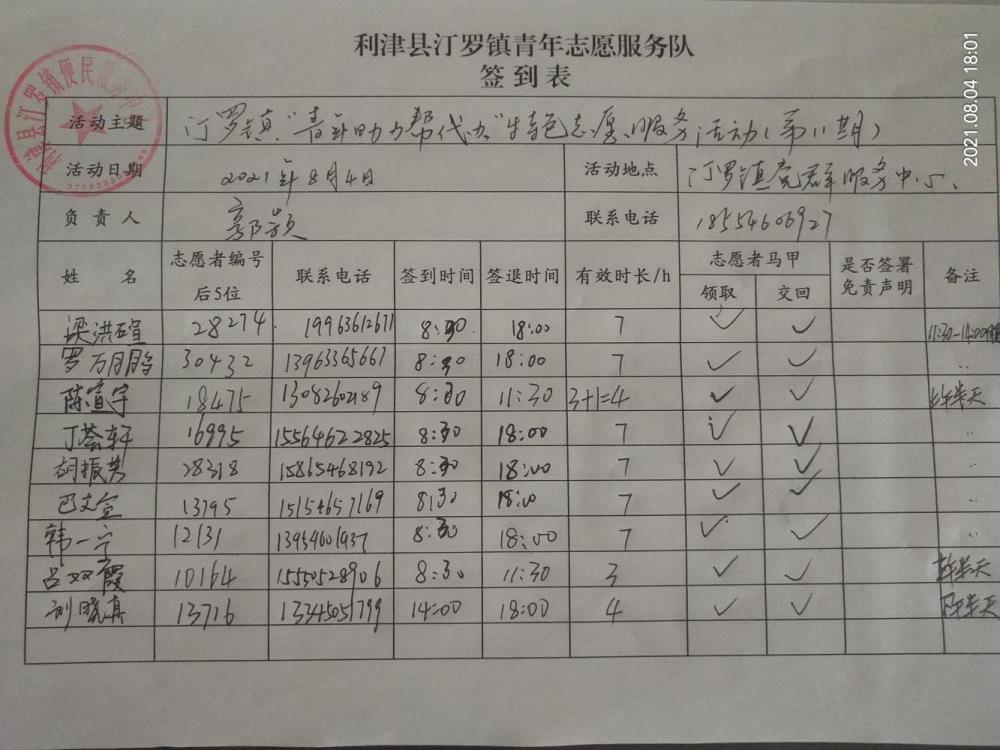 利津县汀罗镇青年志愿服务队
签到表
2021.08.04 18:01
活动主题 汀罗镇"青年助力帮代办"特色志愿服务活动(第11期)
活动日期 2021年8月4日 活动地点 汀罗镇党群服务中心
负责人 郭颖 联系电话 18554606927
姓名 志愿者编号后5位 联系电话 签到时间 签退时间 有效时长/h 志愿者马甲 领取 交回 是否签署免责声明 备注
梁洪瑄 28274 19963612671 8:30 18:00 7 ✓ ✓ 11:30-14:00
罗万鹏 30432 13963365667 8:30 18:00 7 ✓ ✓ ..
陈宣宇 18475 13082602189 8:30 11:30 3+1=4 ✓ ✓ 半天
丁荟轩 16995 15564622825 8:30 18:00 7 ✓ ✓ ..
胡振芳 28318 15865468192 8:30 18:00 7 ✓ ✓ ..
巴文萱 13795 15154657169 8:30 18:00 7 ✓ ✓ ..
韩一宁 12131 13954601937 8:30 18:00 7 ✓ ✓ ..
吕双霞 10164 15550528906 8:30 11:30 3 ✓ ✓ 半天
刘晓真 13716 13345051799 14:00 18:00 4 ✓ ✓ 半天